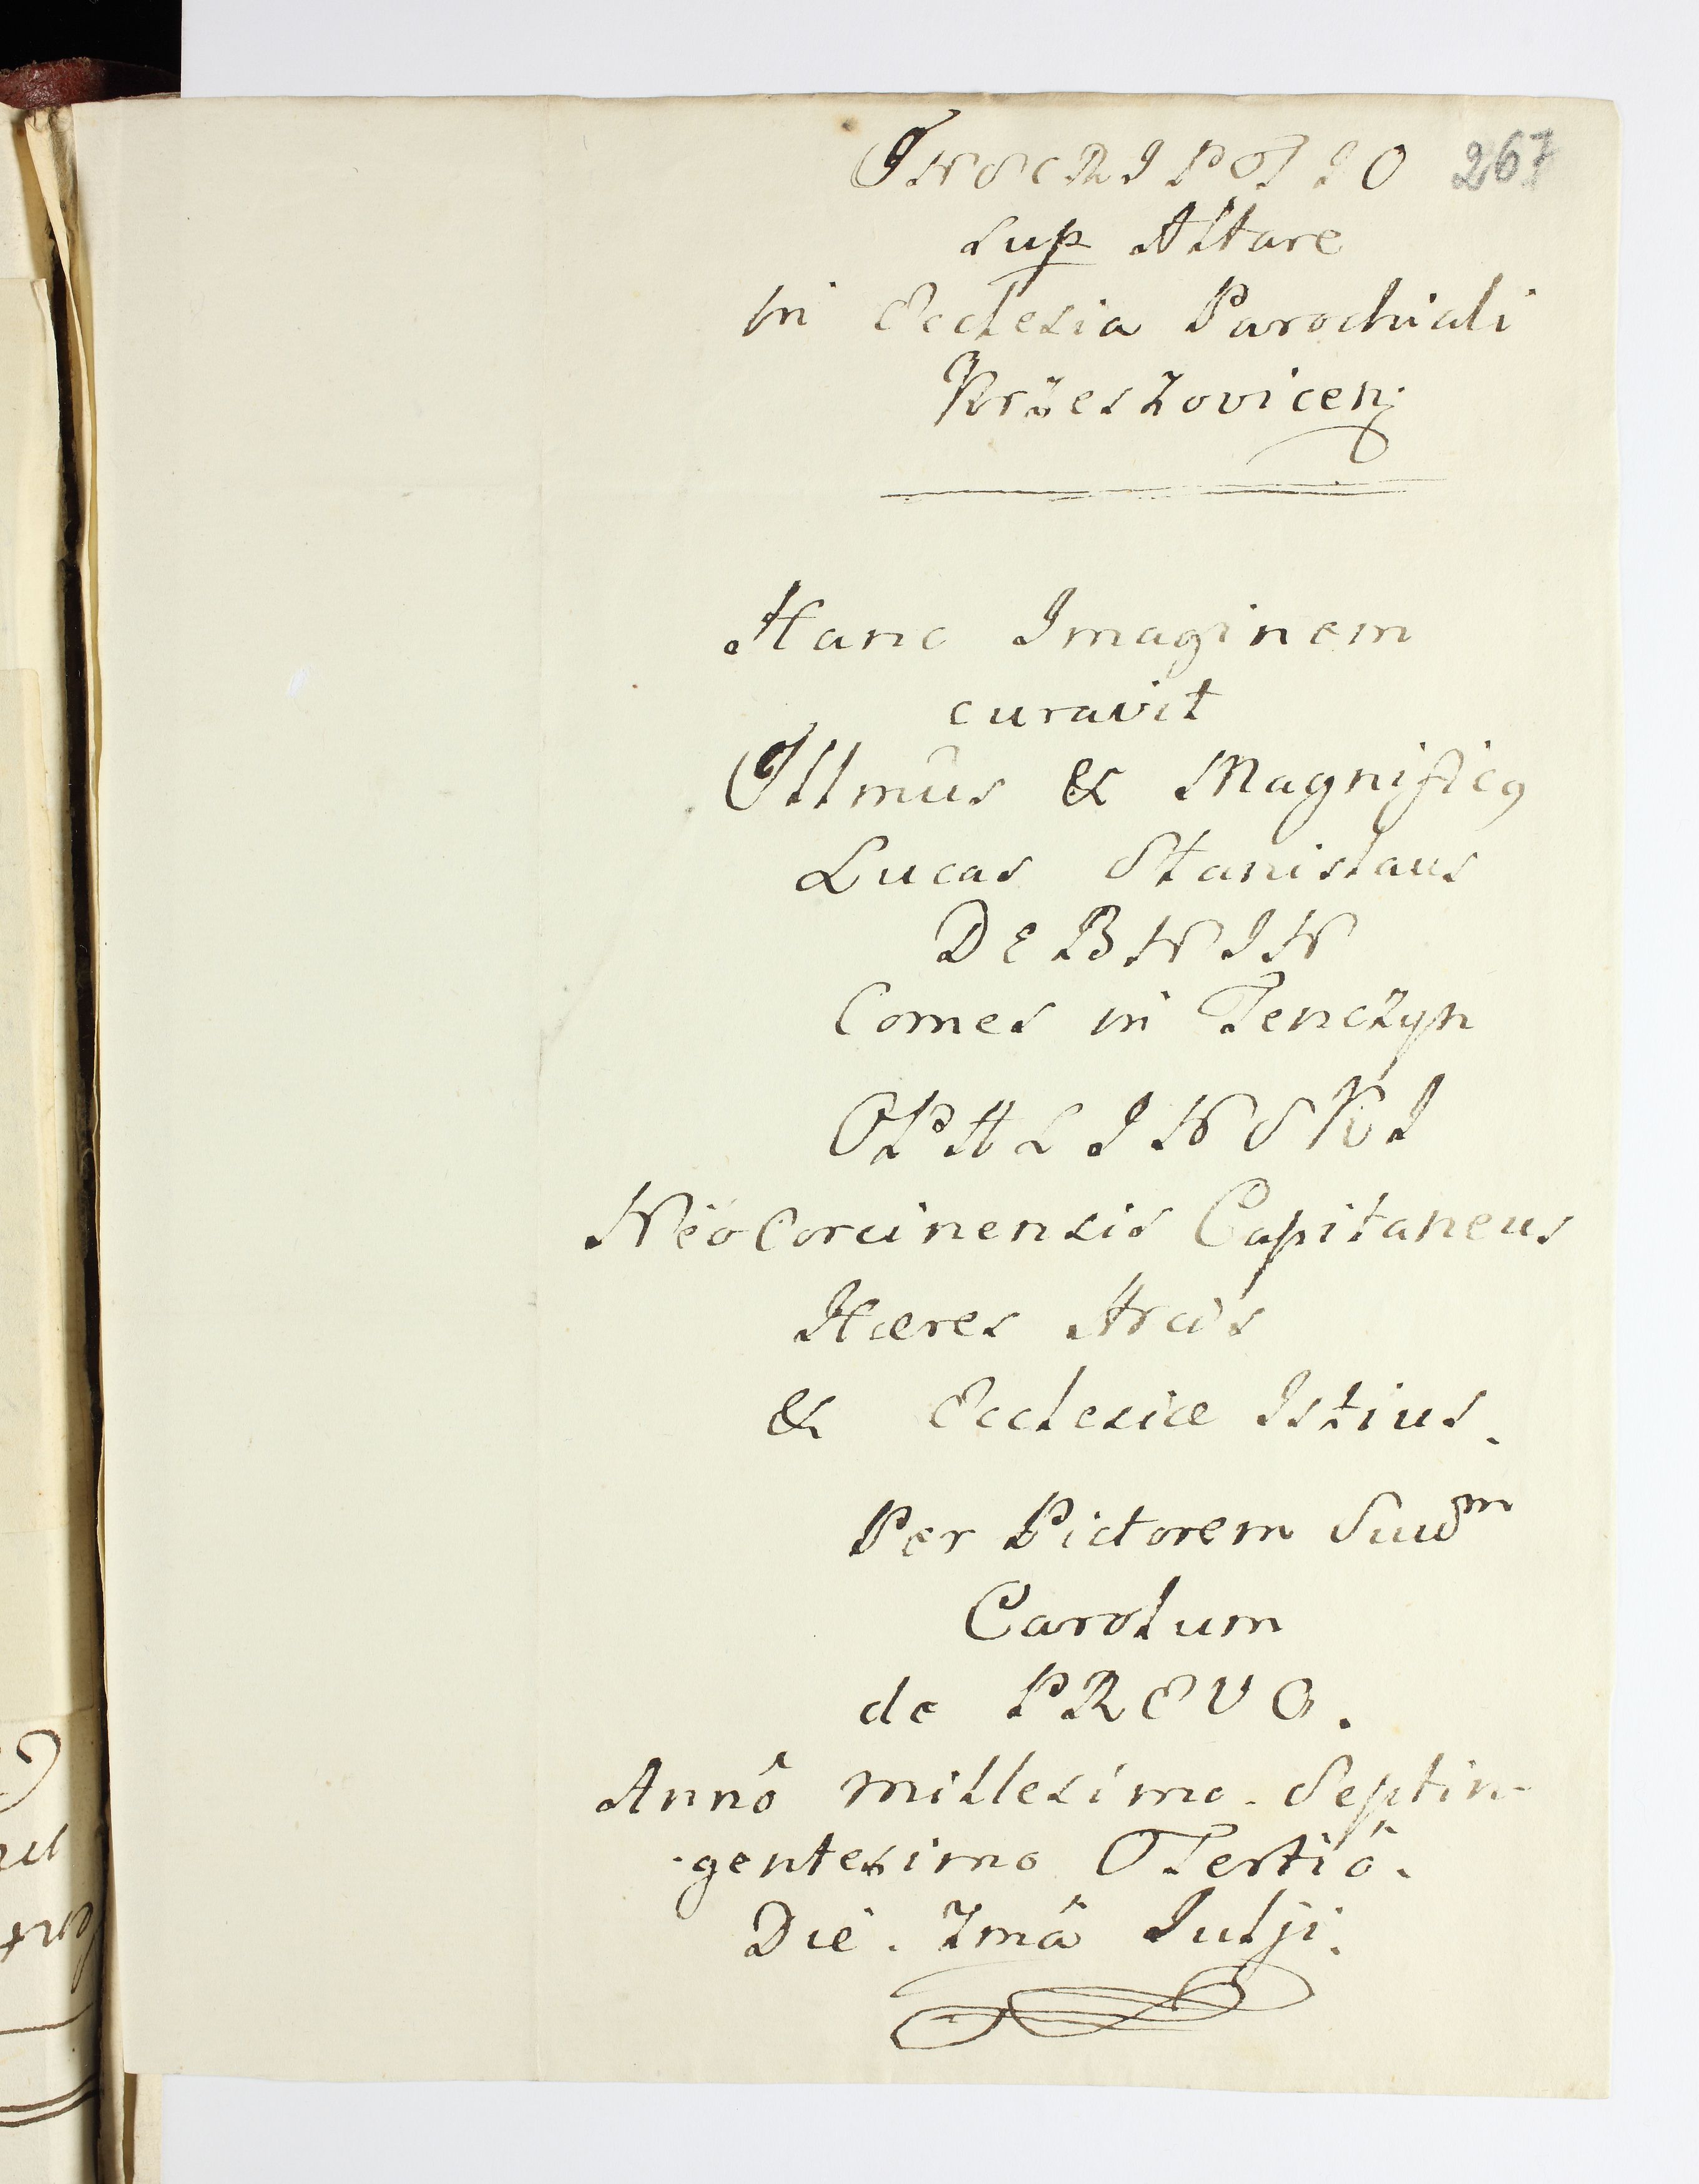 INSCRIPTIO 267
sup Altare
in Ecclesia Parochiali
Krzeszovicen:
Hanc Imaginem
curavit
Illmûs & Magnificꝰ
Lucas Stanislaus
De BNIN
Comes in Tenczyn
OPALINSKI
NëoCorcinensis Capitaneus
Hæres Arcis
& Ecclesiæ Istius.
Per Pictorem Suũᵐ
Carolum
de PREVO.
Annô millesimo. Septin-
-gentesimo Tertiô.
Die. Imâ Julji.